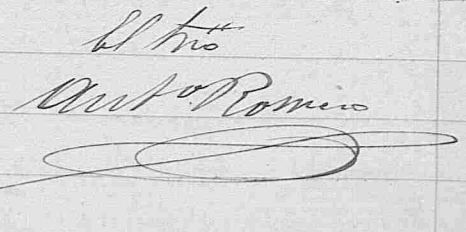 El Srio
Anto. Romero